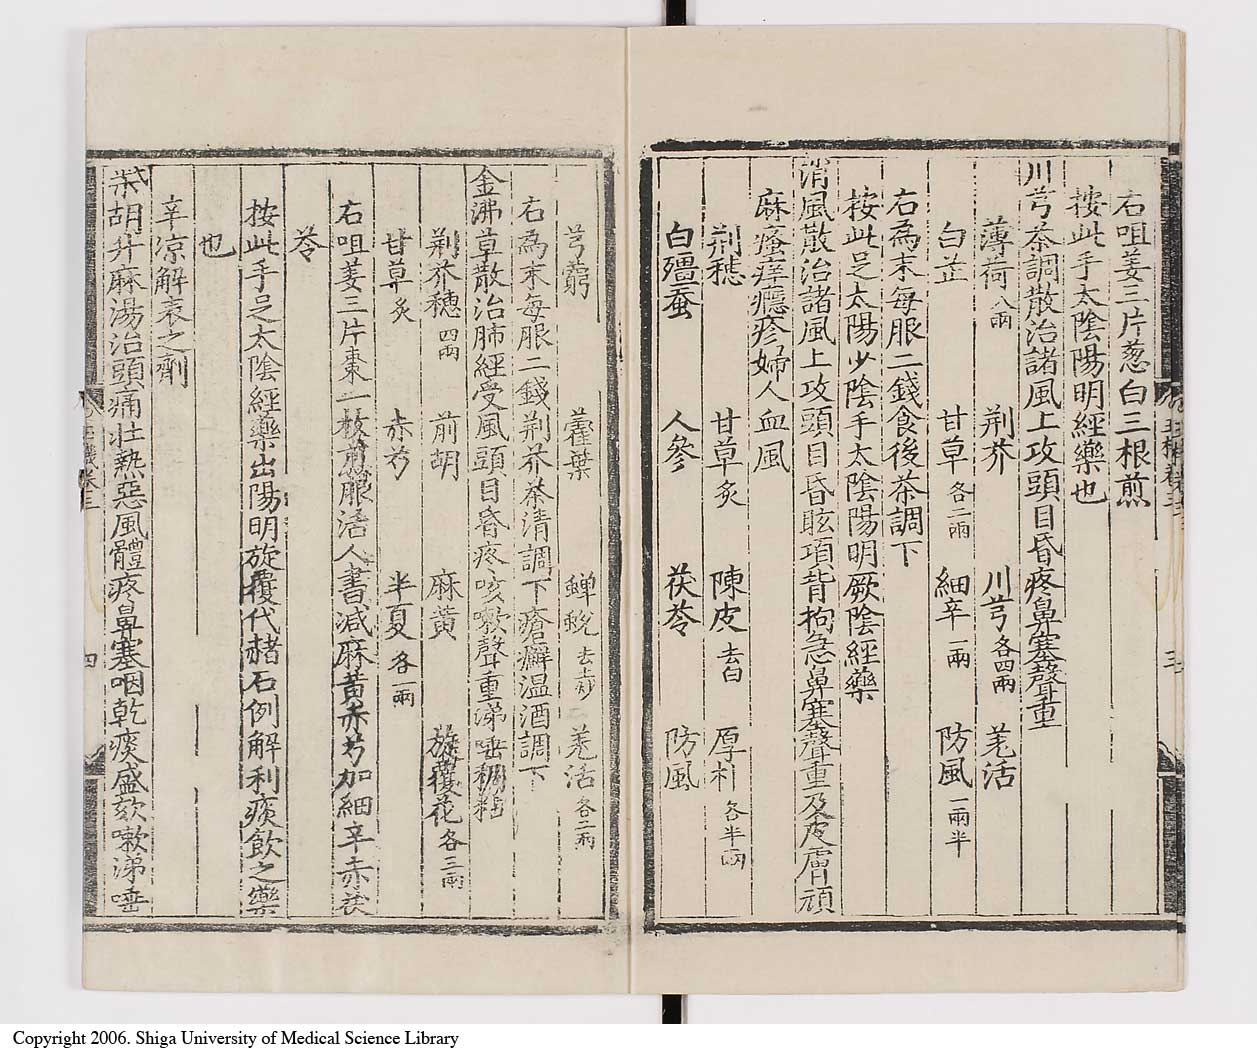 右咀姜三片葱白三根煎
按此手太陰陽明經藥也
川芎茶調散治諸風上攻頭目昏疼鼻塞聲重
薄荷八兩 荆芥 川芎各四兩 羌活
白芷 甘草各二兩 細辛一兩 防風一兩半
右為末每服二錢食後茶調下
按此足太陽少陰手太陰陽明厥陰經藥
消風散治諸風上攻頭目昏眩項背拘急鼻塞聲重及皮膚頑
麻瘙痒癮疹婦人血風
荆穗 甘草炙 陳皮去白 厚朴各半兩
白殭蚕 人參 茯苓 防風
芎藭 藿葉 蟬蛻去土炒 羌活各二兩
右為末每服二錢荆芥茶清調下瘡癬温酒調下
金沸草散治肺經受風頭目昏疼咳嗽聲重涕唾稠粘
荆芥穗四兩 前胡 麻黄 旋覆花各三兩
甘草炙 赤芍 半夏各一兩
右咀姜三片棗一枚煎服活人書减麻黄赤芍加細辛赤茯
苓
按此手足太陰經藥出陽明旋覆代赭石例解利痰飲之藥
也
辛凉解表之劑
柴胡升麻湯治頭痛壮熱惡風體疼鼻塞咽乾痰盛欬嗽涕唾
四
Copyright 2006. Shiga University of Medical Science Library